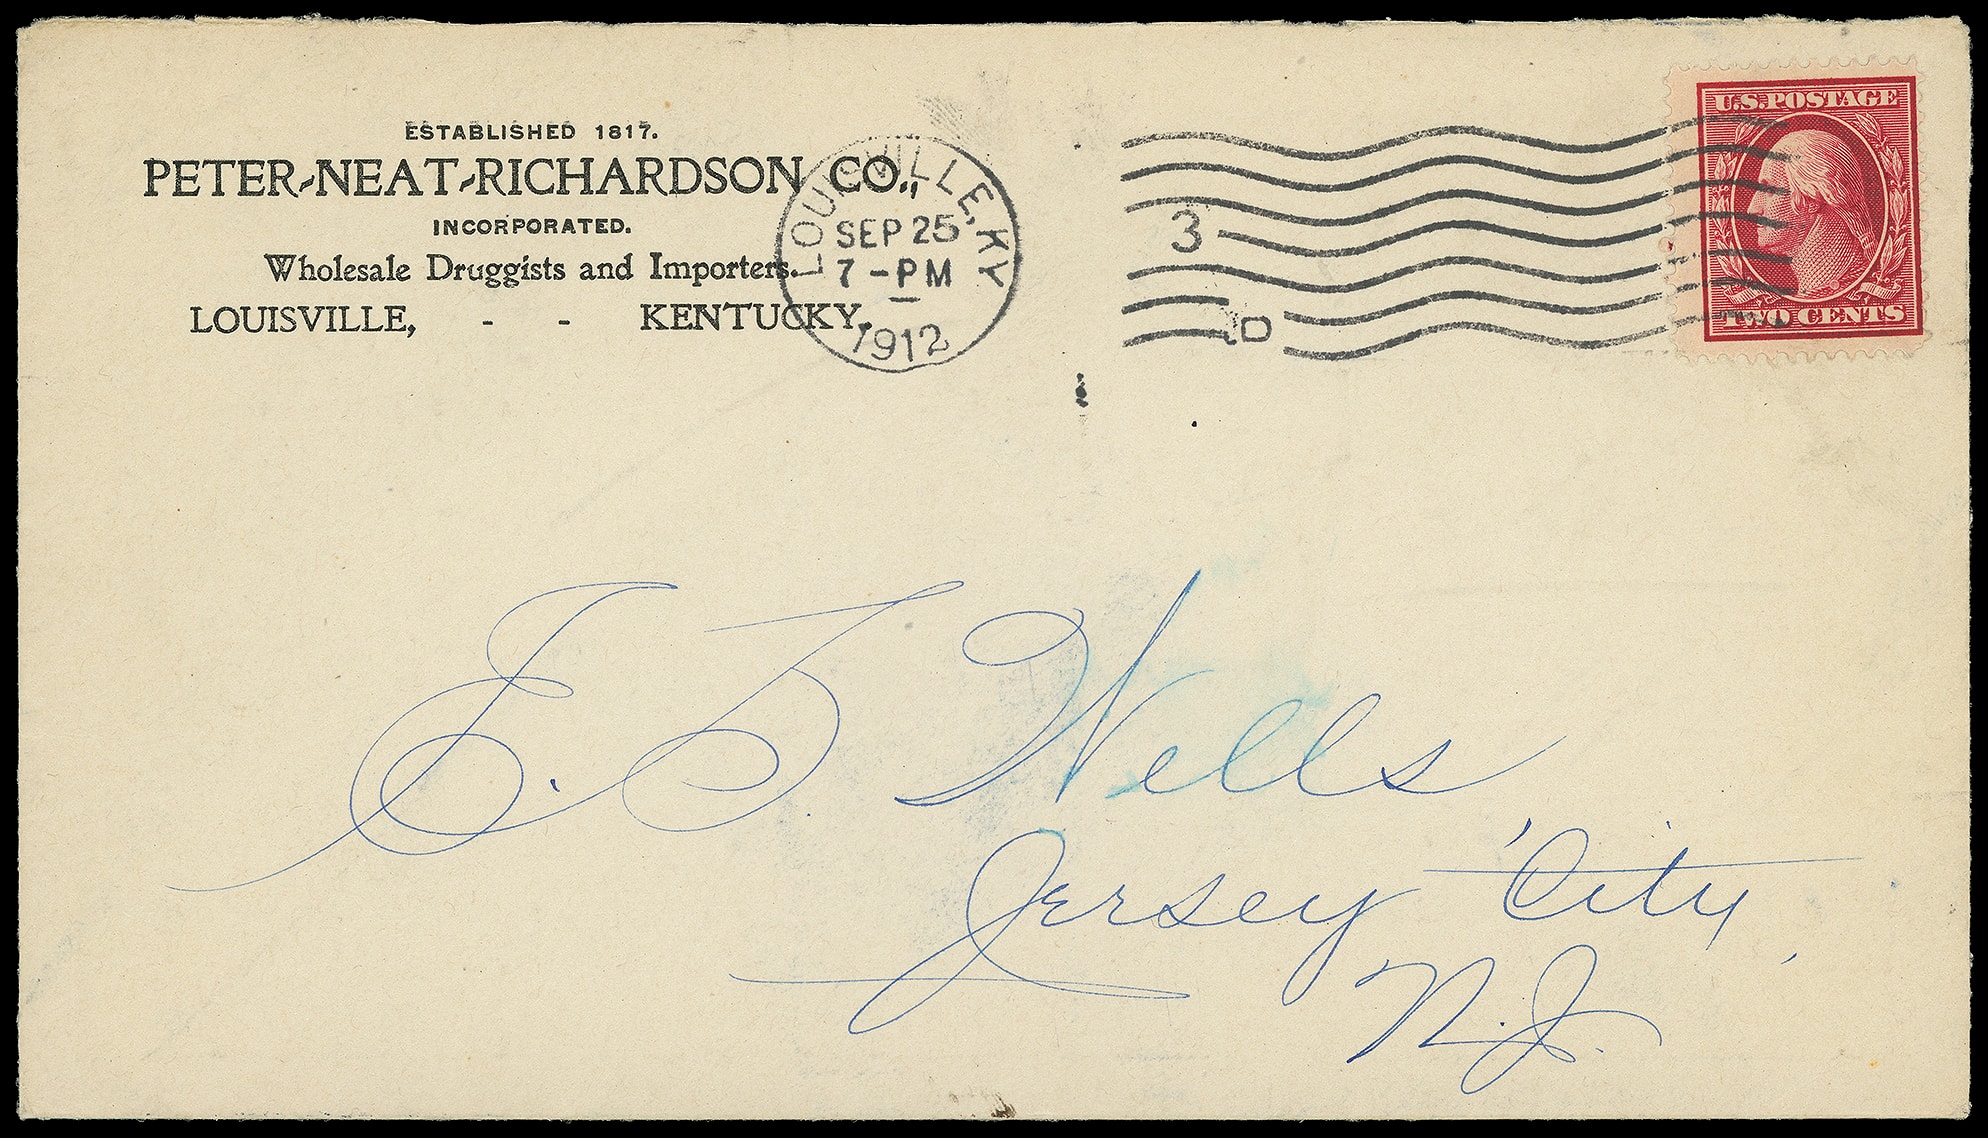 ESTABLISHED 1817.
PETER-NEAT-RICHARDSON CO.,
INCORPORATED.
Wholesale Druggists and Importers.
LOUISVILLE, - - KENTUCKY.
LOUISVILLE, KY
SEP 25
7 - PM
1912
3
D
U.S. POSTAGE
TWO CENTS
E. F. Wells
Jersey City,
N.J.